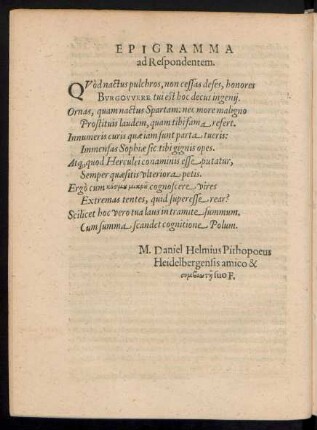 EPIGRAMMA
ad Respondentem.
QVòd nactus pulchros, non cessas deses, honores
BVRGOVVERE tui est hoc decus ingenij.
Ornas, quam nactus Spartam: nec more maligno
Prostituis laudem, quam tibi fama refert.
Innumeris curis quæ iam sunt parta tueris:
Immensas Sophiæ sic tibi gignis opes.
Atq́, quod Herculei conaminis esse putatur,
Semper quæsitis vlteriora petis.
Ergò cum κόσμου μικροῦ cognoscere vires
Extremas tentes, quid superesse rear?
Scilicet hoc vero tua laus in tramite summum,
Cum summa scandet cognitione Polum.
M. Daniel Helmius Pithopoeus
Heidelbergensis amico &
suo F.